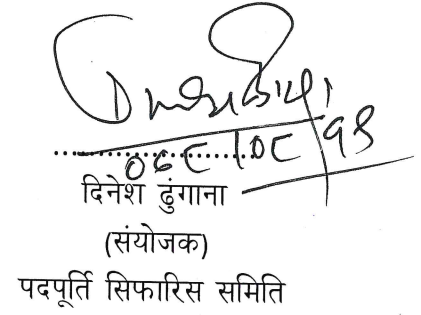 ०७८।०८।१९
दिनेश ढुंगाना
(संयोजक)
पदपूर्ति सिफारिस समिति